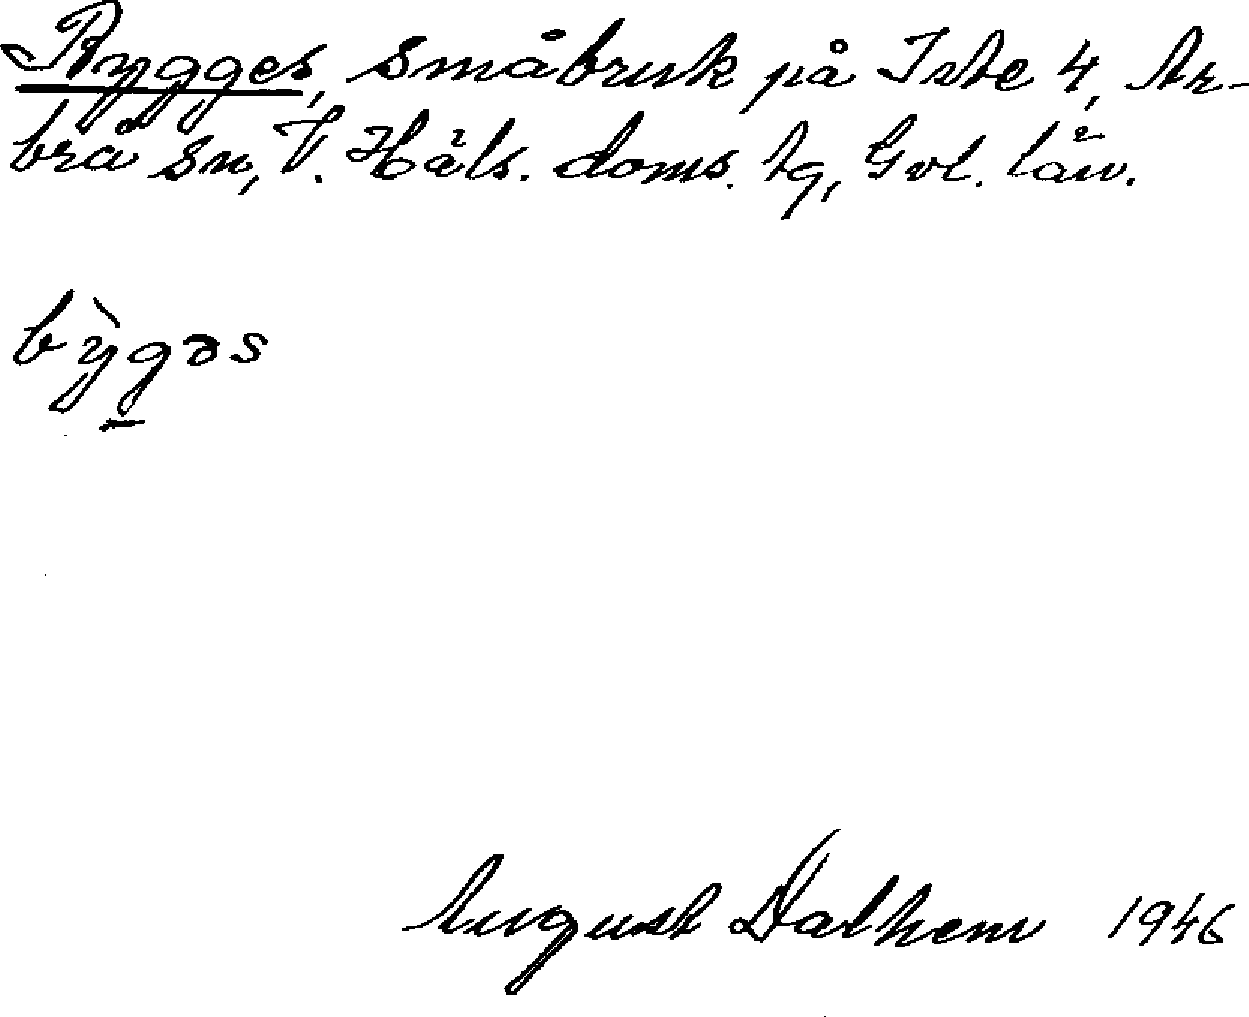 Bygges, småbruk på Iste 4, Ar-
brå sn, V. Häls. doms. lg, Gvl. län.
bỳgəs
August Dalhem 1946